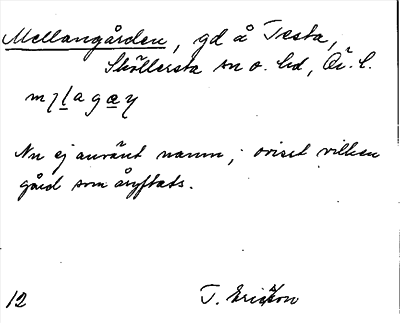 Mellangården, gd å Testa,
Sköllersta sn o. hd, Ör. l.
Nu ej använt namn; ovisst vilken
gård som åsyftats.
12 T. Ericsson